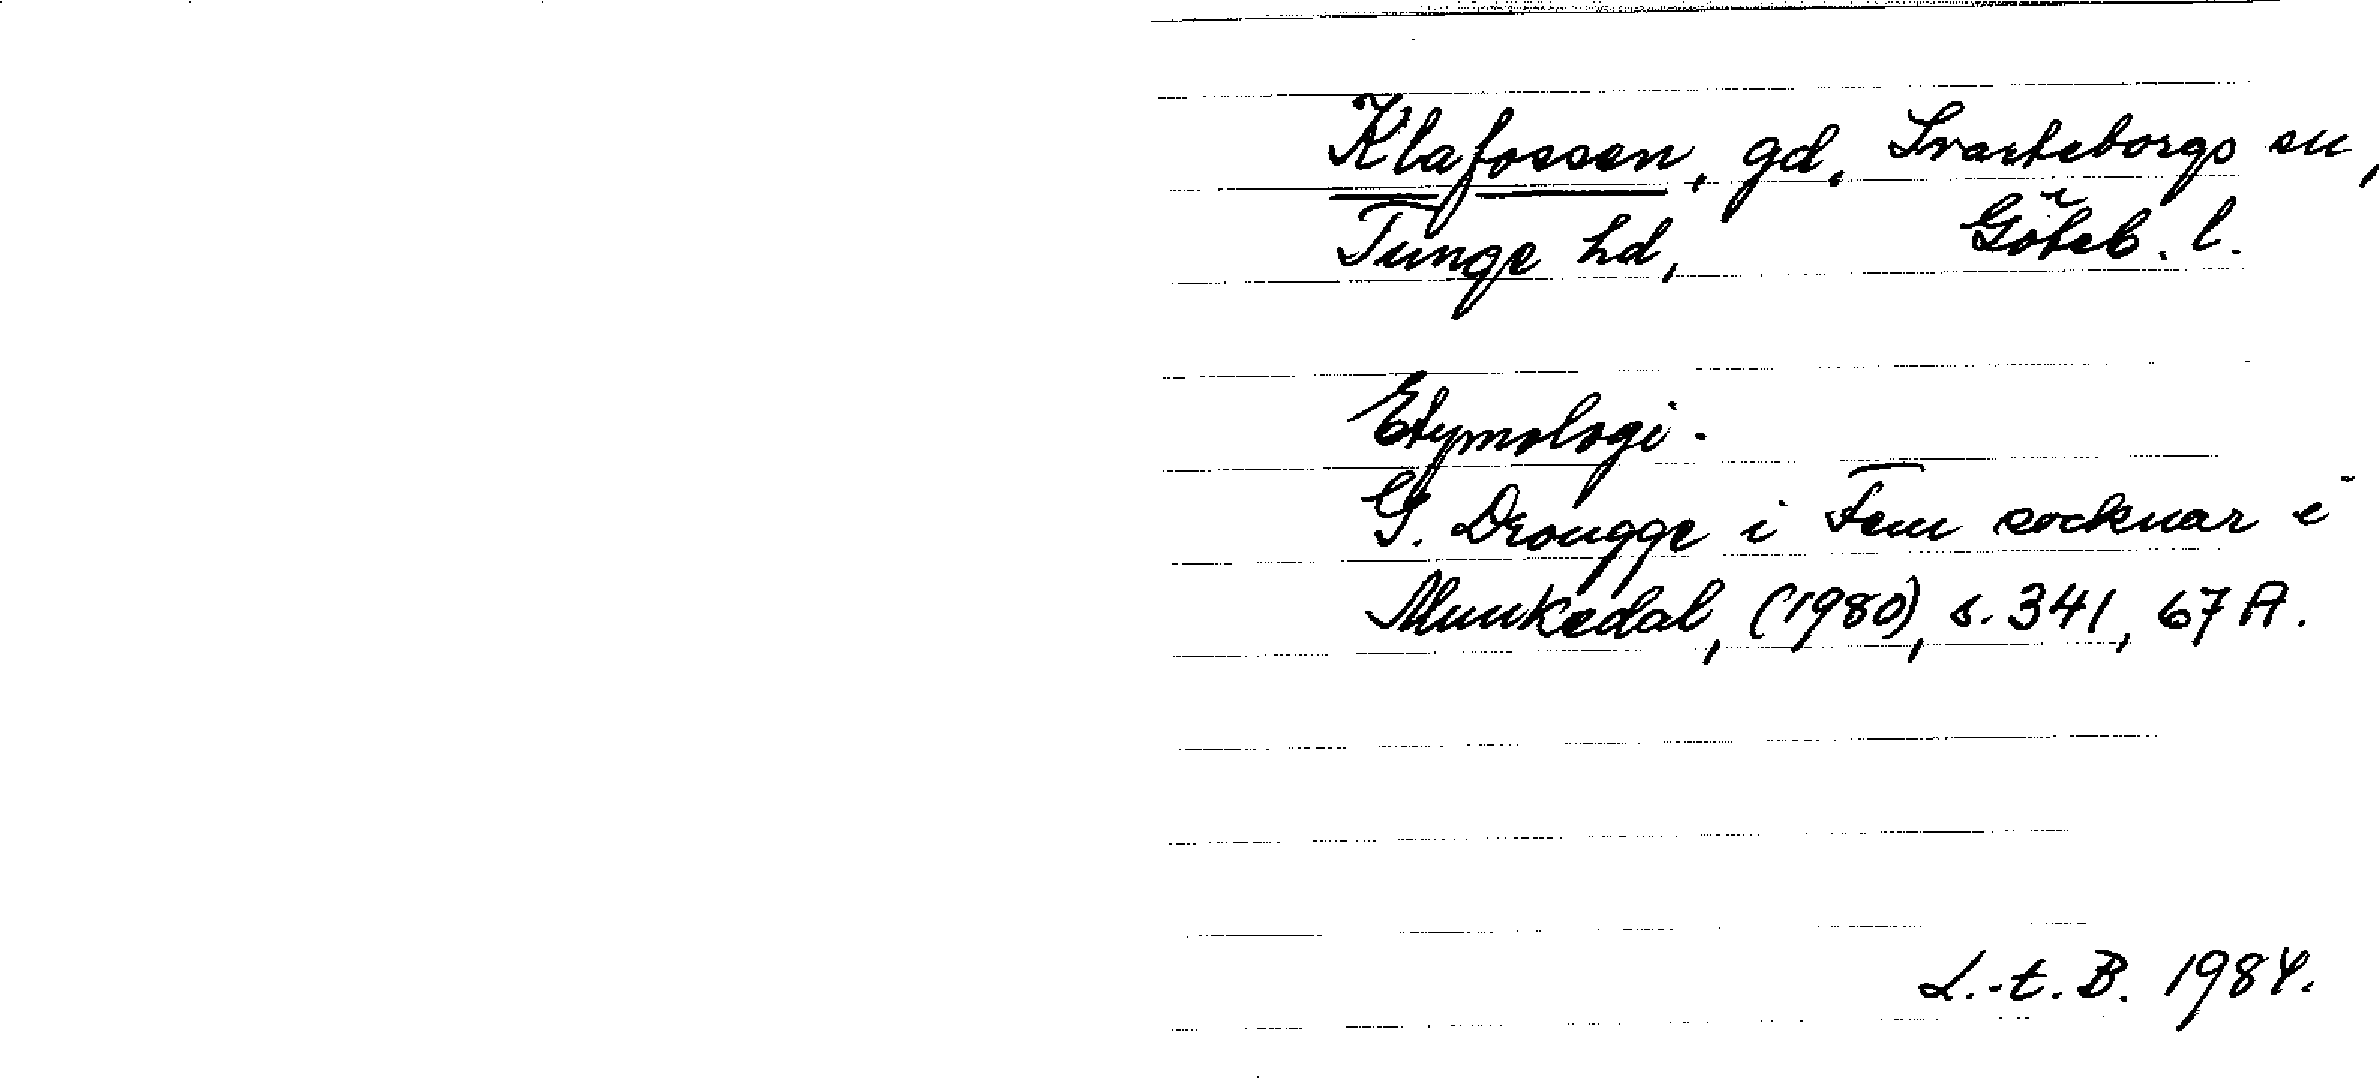 Klafossen, gd, Svarteborgs sn,
Tunge hd, Göteb. l.
Etymologi.
G. Drougge i Fem socknar i
Munkedal, (1980), s. 341, 67 A.
L.-t. B. 1984.